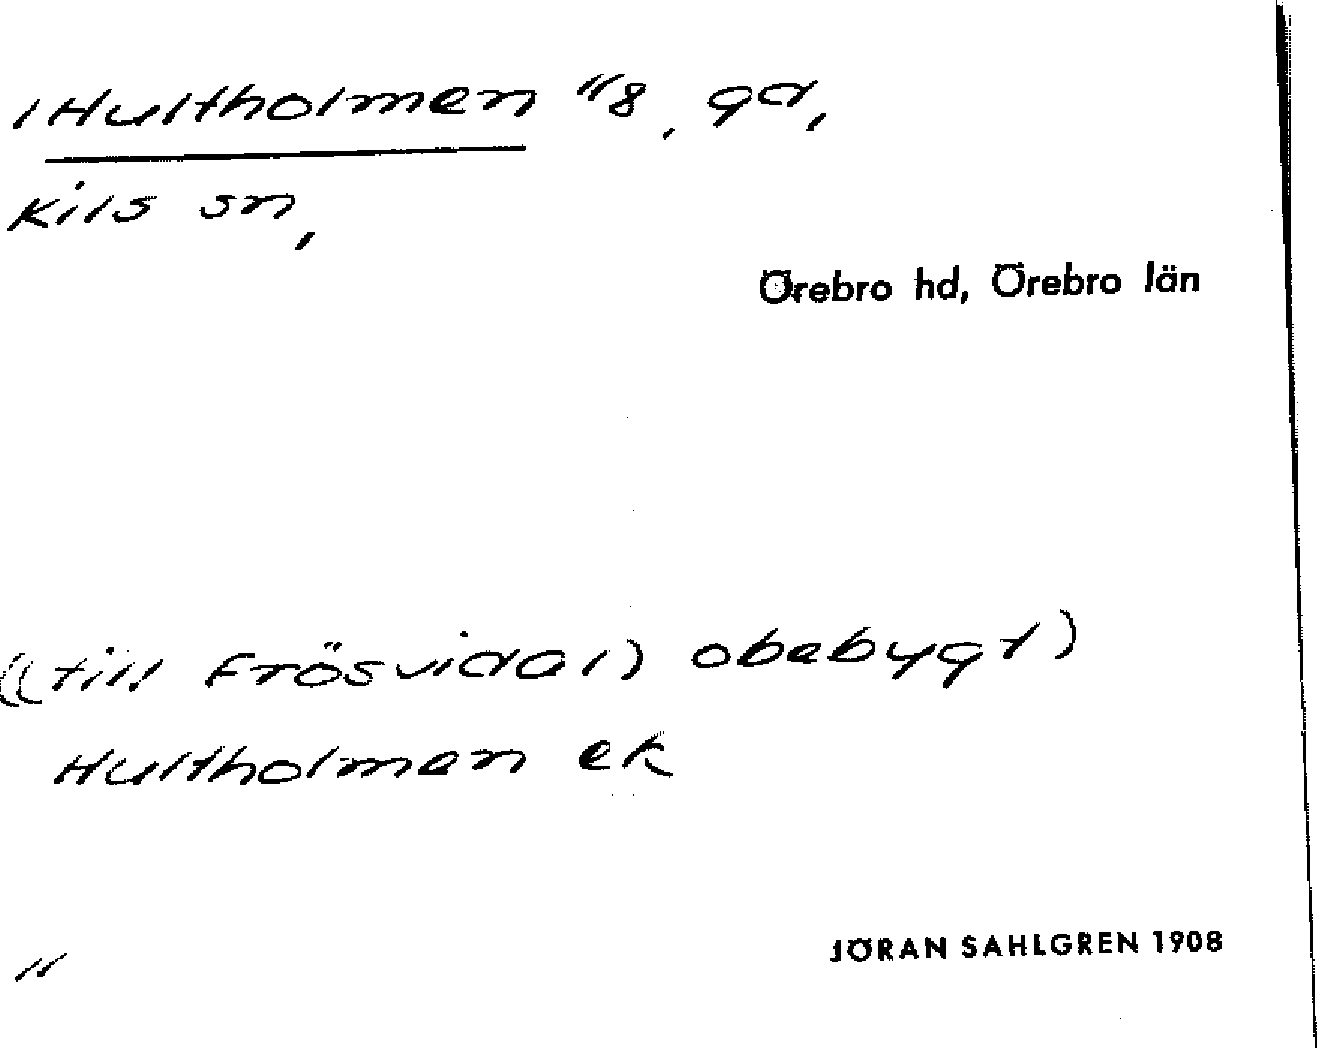 Hultholmen 1/8, gd,
Kils sn,
Örebro hd, Örebro län
((till Frösvidal) obebygt)
Hultholmen ek
JÖRAN SAHLGREN 1908